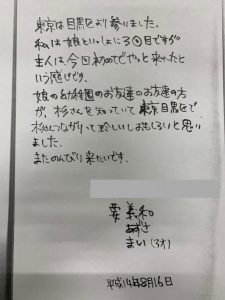 東京は目黒区より参りました。
私は娘といっしょに3回目ですが
主人は今回初めてでやっと来れたと
いう感じです。
娘の幼稚園のお友達のお友達の方
が、杉さんを知っていて東京目黒区で
杉さんつながりって珍しいしおもしろいと思い
ました。
またのんびり来たいです。
義和
あずさ
まい(3才)
平成14年8月16日